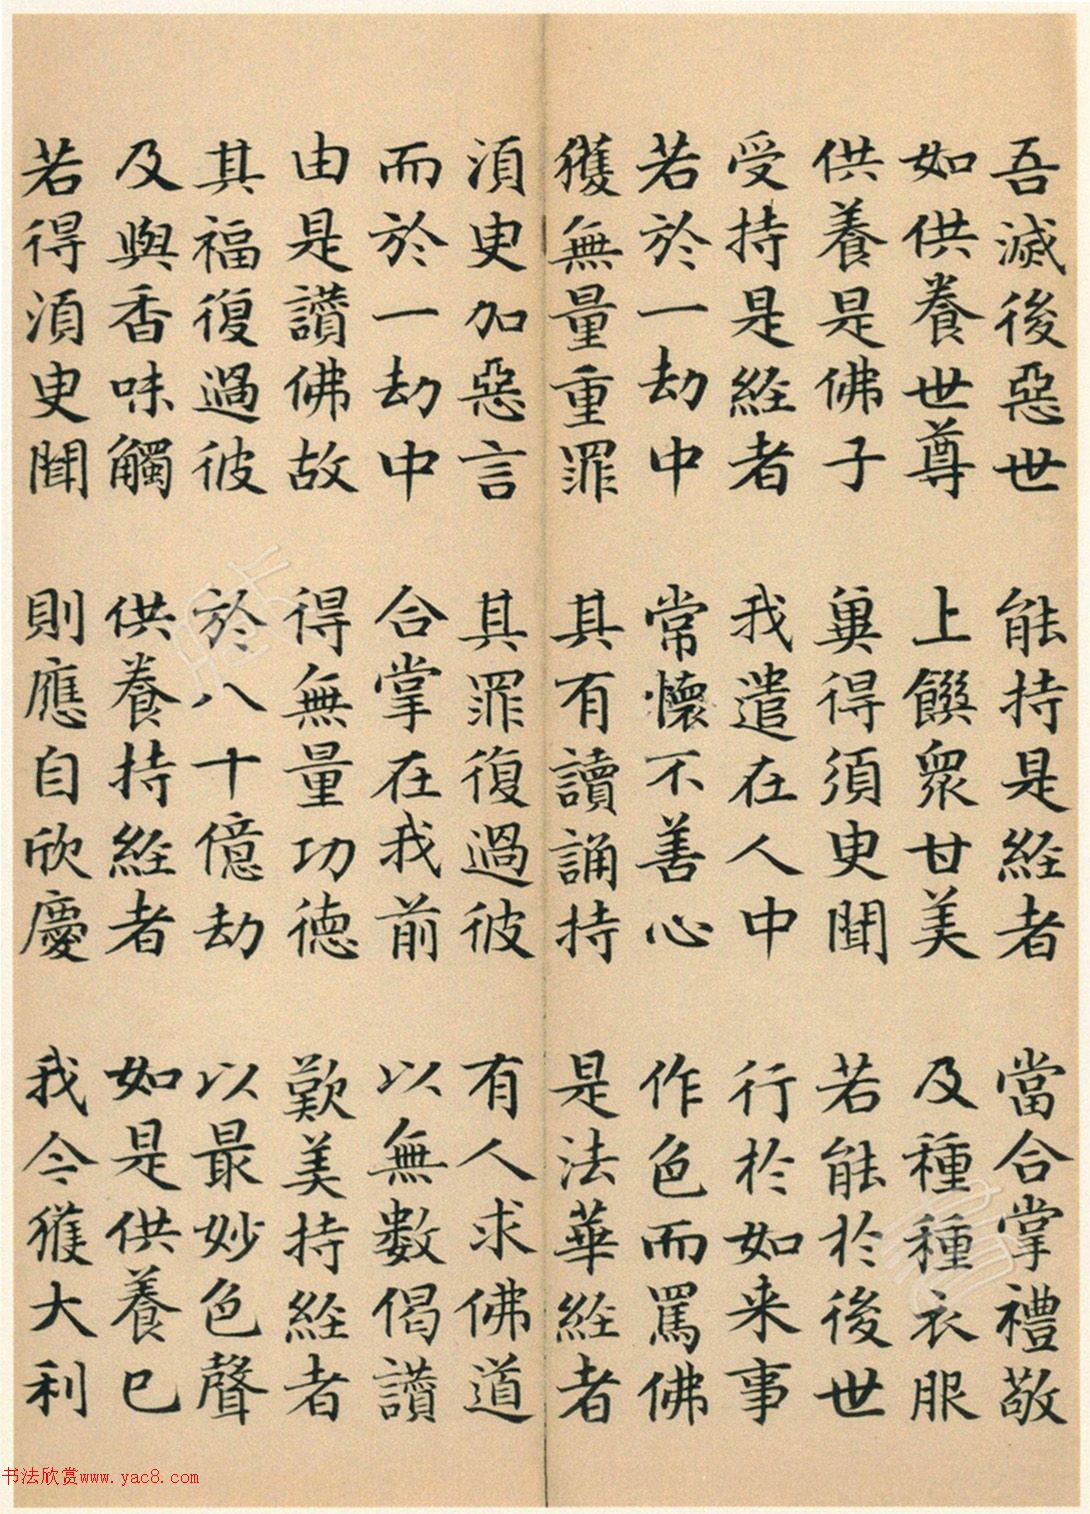 吾滅後惡世 能持是經者 當合掌禮敬
如供養世尊 上饌眾甘美 及種種衣服
供養是佛子 冀得須臾聞 若能於後世
受持是經者 我遣在人中 行於如来事
若於一劫中 常懷不善心 作色而罵佛
獲無量重罪 其有讀誦持 是法華經者
須臾加惡言 其罪復過彼 有人求佛道
而於一劫中 合掌在我前 以無數偈讚
由是讚佛故 得無量功德 歎美持經者
其福復過彼 於八十億劫 以最妙色聲
及與香味觸 供養持經者 如是供養已
若得須臾聞 則應自欣慶 我今獲大利
书法欣赏www.yac8.com